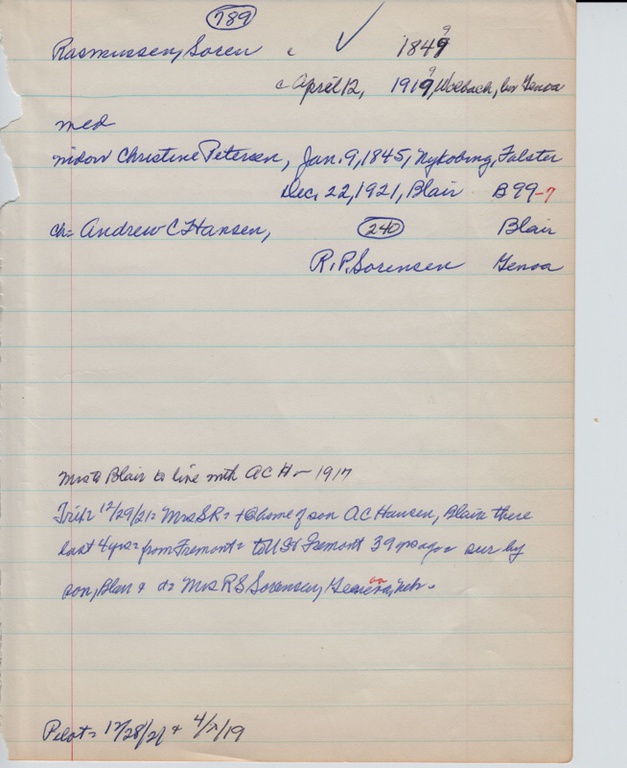 789
Rasmussen, Soren c ✓ 1849 9
c April 12, 1919 9, Wolbach, bur Genoa
med
widow Christine Petersen, Jan. 9, 1845, Nykobing, Falster
Dec. 22, 1921, Blair B 99-7
ch= Andrew C Hansen, 240 Blair
R.P. Sorensen Genoa
Mrs to Blair to live with A C H - 1917
Trib= 12/29/21= Mrs S R= + @ home of son A C Hansen, Blair there
last 4 yrs= from Fremont= to U S + Fremont 39 yrs ago= sur by
son, Blair + d= Mrs R S Sorensen, Genoa, Neb.
Pilot= 12/28/21 + 4/ /19